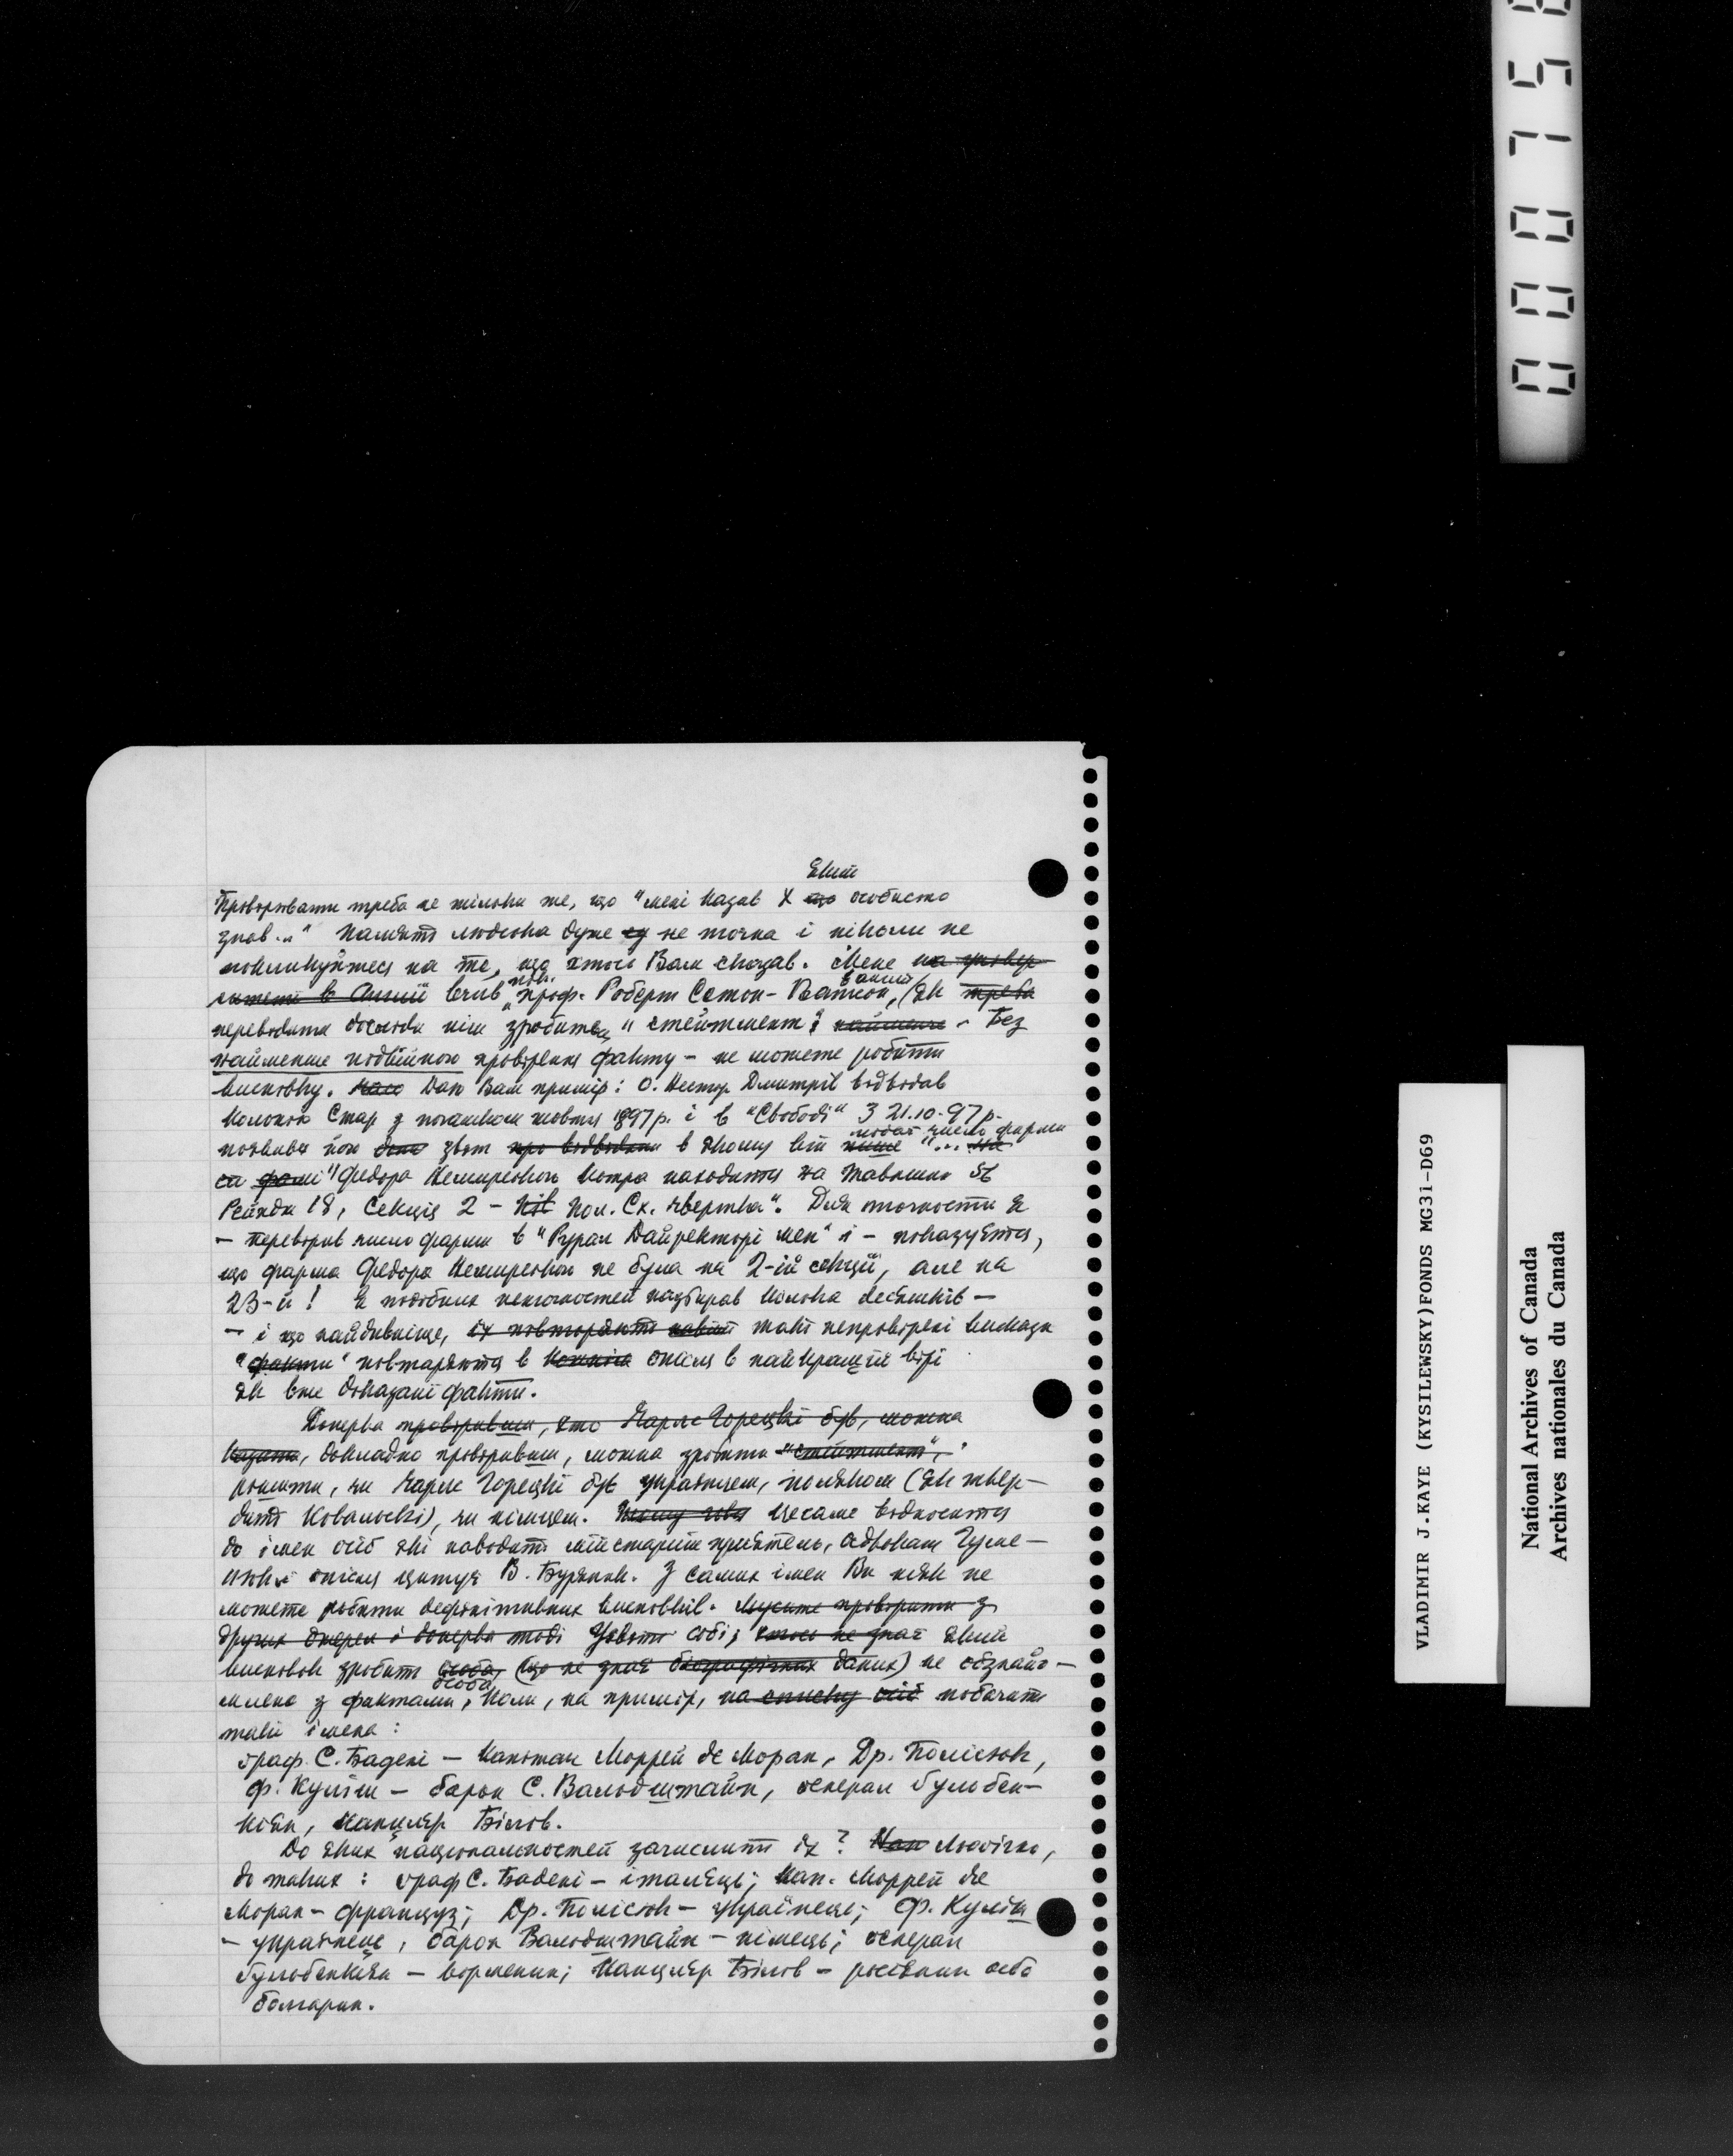 який
Провірювати треба не тільки те, що "мені казав Х що особисто
знав..." Память людська дуже є не точна і ніколи не
покликуйтеся на те, що хтось Вам сказав. Мене на універ-
ситеті в Англії вчив пок. проф. Роберт Сетон-Ватсон, в Англії, (як треба
перевірити досліди ніж зробити "стейтмент": найменше - Без
найменше подвійного провірення факту - не можете робити
висновку. Дам Вам примір: О. Нестор Дмитрів відвідав
Кольонію Стар з початком жовтня 1897 р. і в "Свободі" з 21.10.97 р.
появився його звіт про відвідини в якому він пише подає число фарми "... на
фармі "Федора Немирского котра находится на Тавншип 56
Рейндж 18, Секція 2 - Пол. Сх. чвертка". Для точности я
- перевірив число фарми в "Рурал Дайректорі меп" і - показується,
що фарма Федора Немирского не була на 2-ій секції, але на
23-й! Я подібних неточностей назбирав кілька десятків -
- і що найдивніще, їх повторяють навіть такі непровірені викази
"факти" повтаряються в опісля в найкращій вірі
як вже доказані факти.
Доперва провіривши, хто Чарлс Горецкі був, можна
казати, докладно провіривши, можна зробити "стейтмент",
рішити, чи Чарлс Горецкі був українцем, поляком (як твер-
дить Ковальскі), чи німцем. Цесаме відноситься
до імен осіб які наводить мій старий приятель, адвокат Гуме-
нюк і опісля цитує В. Буряник. З самих імен Ви ніяк не
можете робити дефінітивних висновків. Мусите провірити з
других джерел і доперва тоді Уявіть собі, хтось не знає який
висновок зробить особа, (що не знає біографічних даних) не обзнайо-
млена особа з фактами, коли, на примір, на списку осіб побачить
такі імена:
граф. С. Бадені - Капітан Моррей де Моран, Др. Полісюк,
Ф. Куліш - барон С. Вальдштайн, генерал Гульбен-
кіян, Канцлєр Білов.
До яких національностей зачислить їх? Логічно,
до таких: граф С. Бадені - італієць; Кап. Моррей де
Моран - француз; Др. Полісюк - українець; Ф. Куліш
- українець, барон Вальдштайн - німець; генерал
Гульбенкіян - вірменин; Канцлєр Білов - росіянин або
болгарин.
000758
VLADIMIR J.KAYE (KYSILEWSKY)FONDS MG31-D69
National Archives of Canada
Archives nationales du Canada